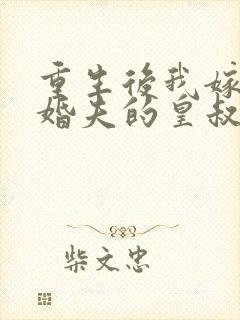 重生後我嫁
婚夫的皇叔
柴文忠